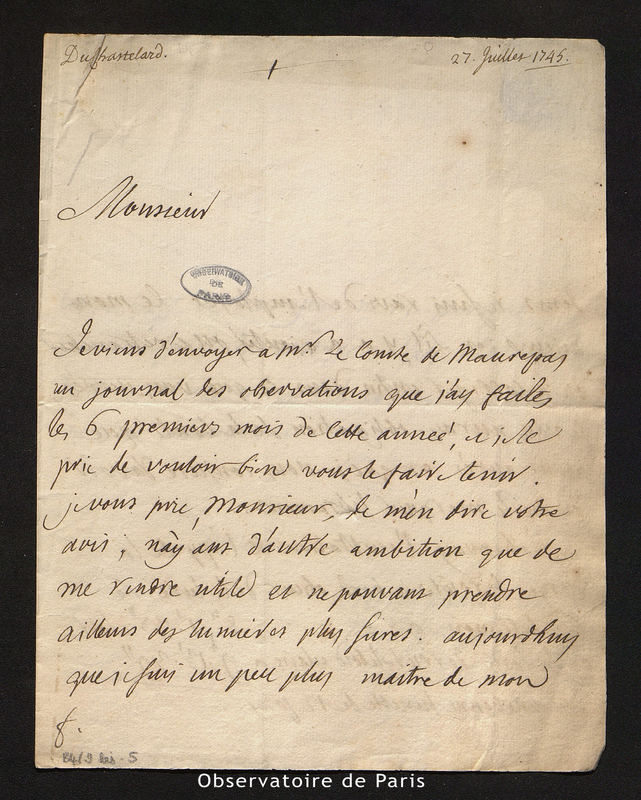 Du Chastelard.
27. Juillet 1745.
1
Monsieur
OBSERVATOIRE
DE
PARIS
Je viens d'envoyer a Mr. Le Comte de Maurepas
un journal des observations que j'ay faites
les 6 premiers mois de cette anneé, et je le
prie de vouloir bien vous le faire tenir.
je vous prie, Monsieur, de m'en dire votre
avis; n'ayant d'autre ambition que de
me rendre utile et ne pouvant prendre
ailleurs des lumieres plus sures. aujourdhuy
que je suis un peu plus maitre de mon
Observatoire de Paris